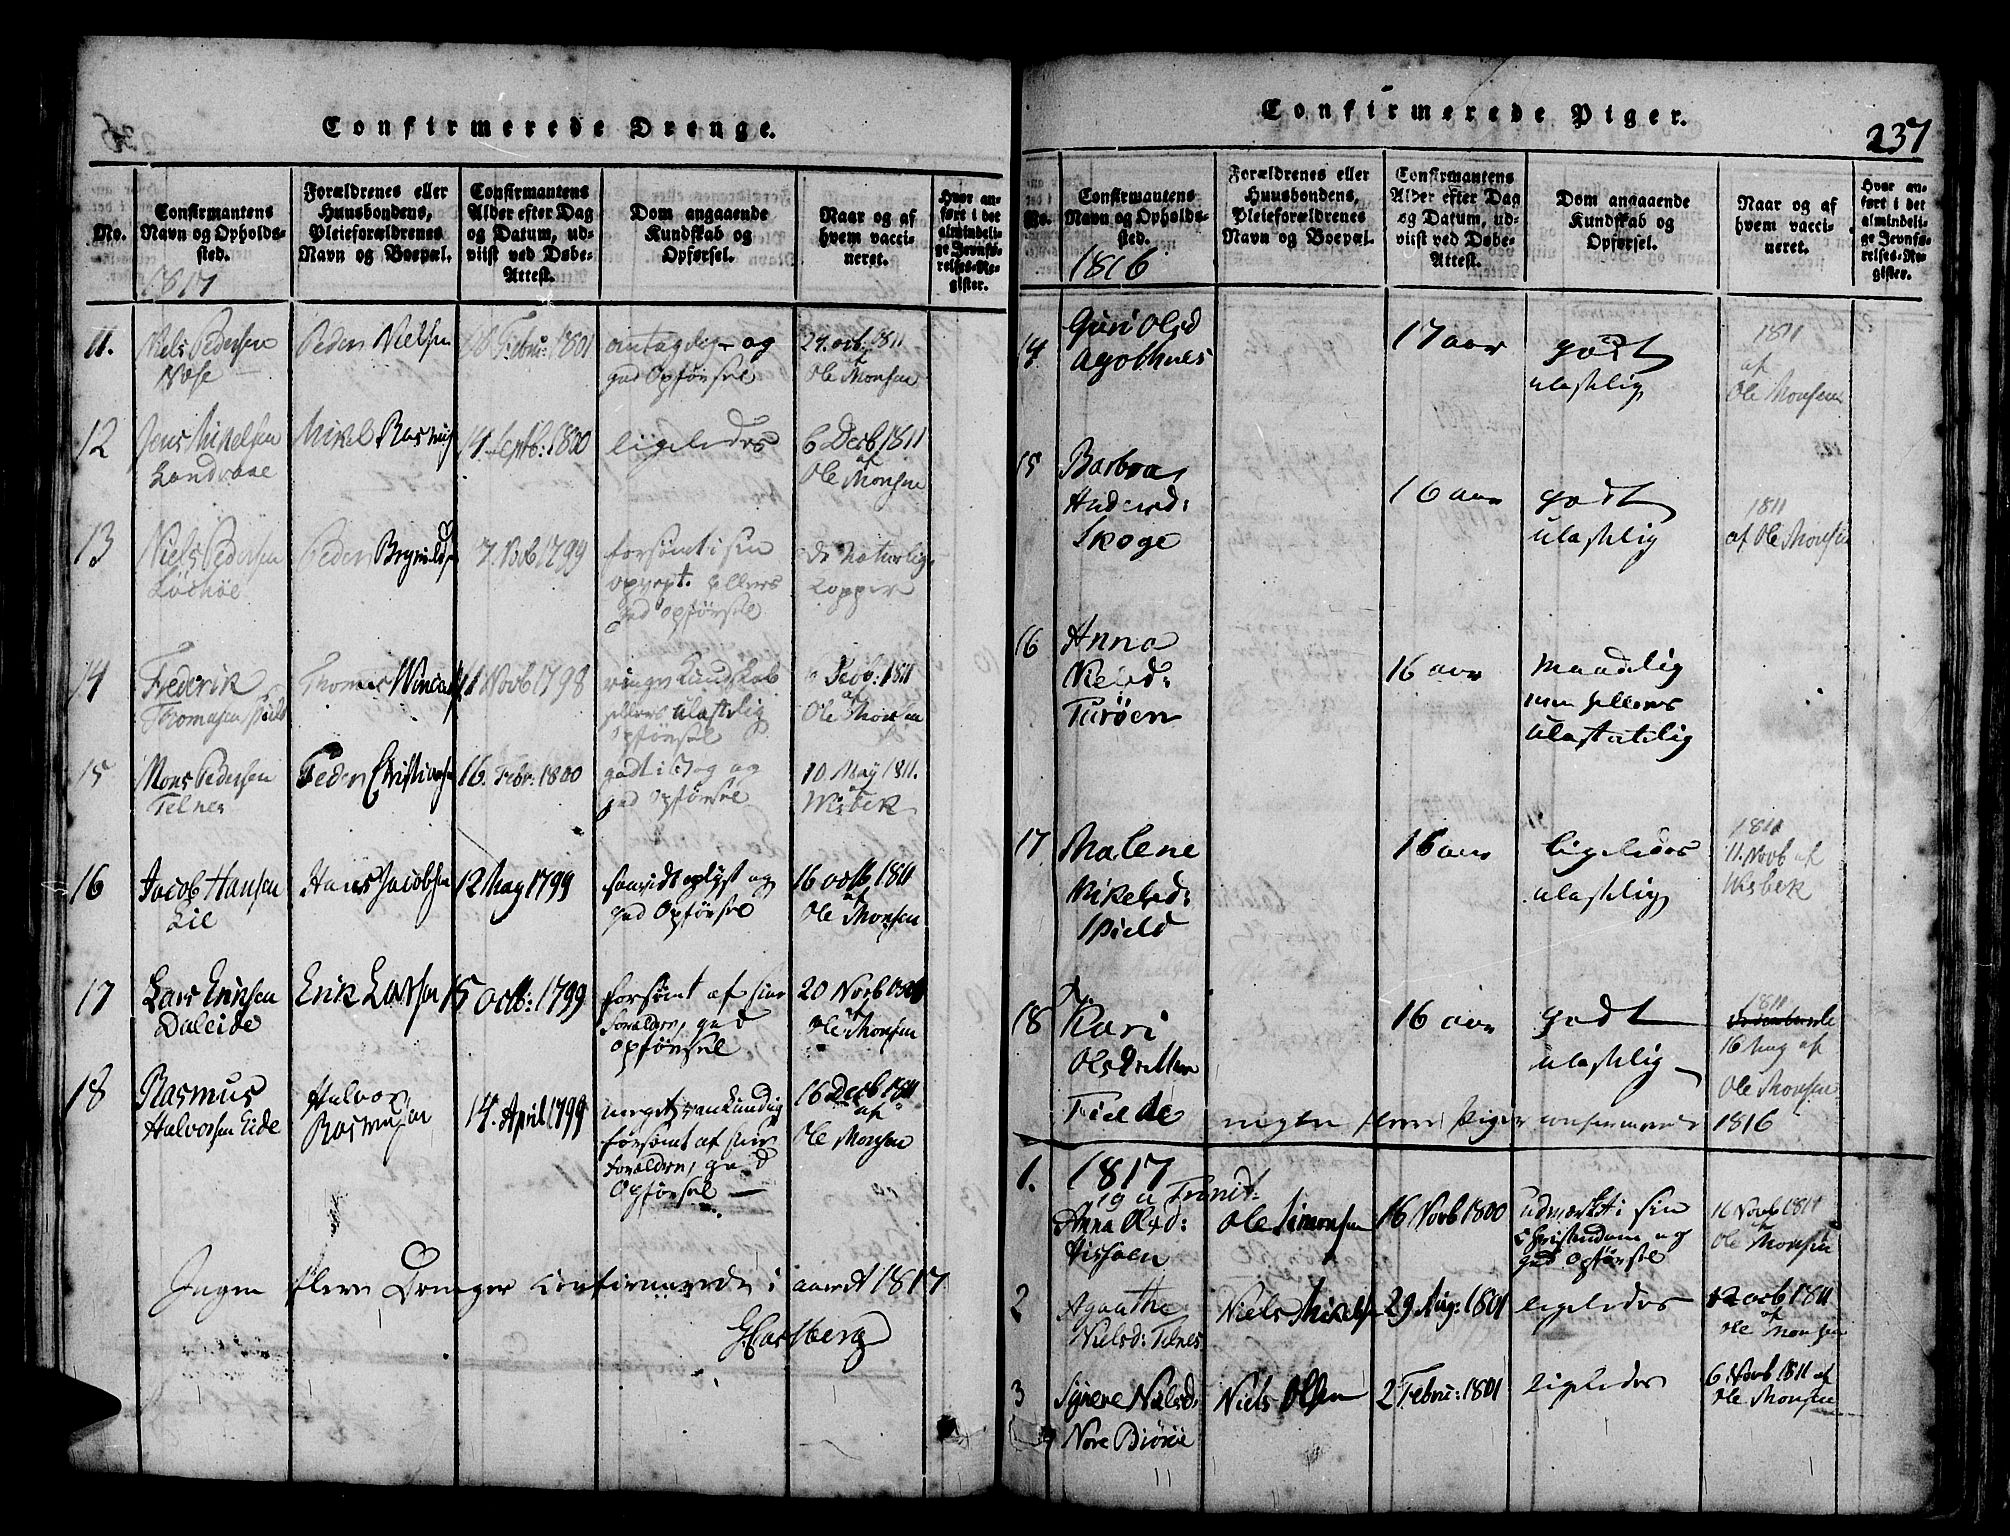 Confirmerede Drenge.
No.
Confirmantens
Navn og Opholds-
sted.
1817
Forældrenes eller
Huusbondens,
Pleieforældrenes
Navn og Boepæl.
Confirmantens
Alder efter Dag
og Datum, ud-
viist ved Døbe-
Attest.
Dom angaaende
Kundskab og
Opførsel.
Naar og af
hvem vacci-
neret.
Hvor an-
ført i det
almindeli-
ge Jevnfø-
relses-Re-
gister.
11.
Niels Pedersen
Næse
Peder Nielsen
16 Febru: 1801
antagelig og
gud Opførsel
29. octb. 1811
af
Ole Monsen
12
Jens Mikelsen
Landvaae
Mikel Rasmus
14 Septb: 1800
ligeledes
6 Decb 1811
af
Ole Monsen
13
Niels Pedersen
Peder
7. Novb 1799
forsømt i sin
ellers
gud opførsel
de Naturlige
Kopper
14
Frederik
Thomesen
Thomas
11 Novb 1798
ringe Kundskab
ellers ulastelig
Opførsel
1811
af
Ole Monsen
15
Mons Pedersen
Telnes
Peder Christiansen
16. Febr: 1800
godt i Bog og
gud Opførsel
10 May 1811.
af
Wisbek
16
Jacob Hansen
Lie
Hans Jacobsen
12 May 1799
oplyst og
gud Opførsel
16 octb 1811
af
Ole Monsen
17
Lars Eriksen
Daleide
Erik Larsen
15 octb: 1799
forsømt af sine
forældre, gud
Opførsel
20 Novb
af
Ole Monsen
18
Rasmus
Halvorsen Eide
Halvor
Rasmusen
14. April 1799
meget vankundig
forsømt af sine
forældre, gud
Opførsel
16 Decb 1811
af
Ole Monsen
Ingen flere Drenger Confirmerede i aaret 1817
Carlberg
Confirmerede Piger.
237
No.
Confirmantens
Navn og Opholds-
sted.
1816
Forældrenes eller
Huusbondens,
Pleieforældrenes
Navn og Boepæl.
Confirmantens
Alder efter Dag
og Datum, ud-
viist ved Døbe-
Attest.
Dom angaaende
Kundskab og
Opførsel.
Naar og af
hvem vacci-
neret.
Hvor an-
ført i det
almindeli-
ge Jevnfø-
relses-Re-
gister.
14
Guri Olsd
Agothnes
17 aar
godt
ulastlig
1811
af
Ole Monsen
15
Barbra
Andersd:
Skoge
16 aar
godt
ulastlig
1811
af Ole Monsen
16
Anna
Nielsd:
Turøen
16 aar
Maadelig
men ellers
ulastelig
17
Malene
Mikelsd:
16 aar
ligeledes
ulastlig
1811
11. Novb af
Wisbek
18
Kari
Fielde
16 aar
godt
ulastlig
1811
16 Aug af
Ole Monsen
ingen flere Piger confirmerede 1816
1.
1817
19 u Trinit:
Anna Olsd:
Ole Simonsen
16 Novb 1800
udmerket i sin
Christendom og
gud Opførsel
16 Novb 1811
Ole Monsen
2
Agathe
Nielsd: Telnes
Niels Mikelsen
29 Aug: 1801
ligeledes
12 octb 1811
af
Ole Monsen
3
Synneve Nielsd:
Nore Biørøe
Niels Olsen
2 Febru: 1801
ligeledes
6 Novb 1811 af
Ole Monsen